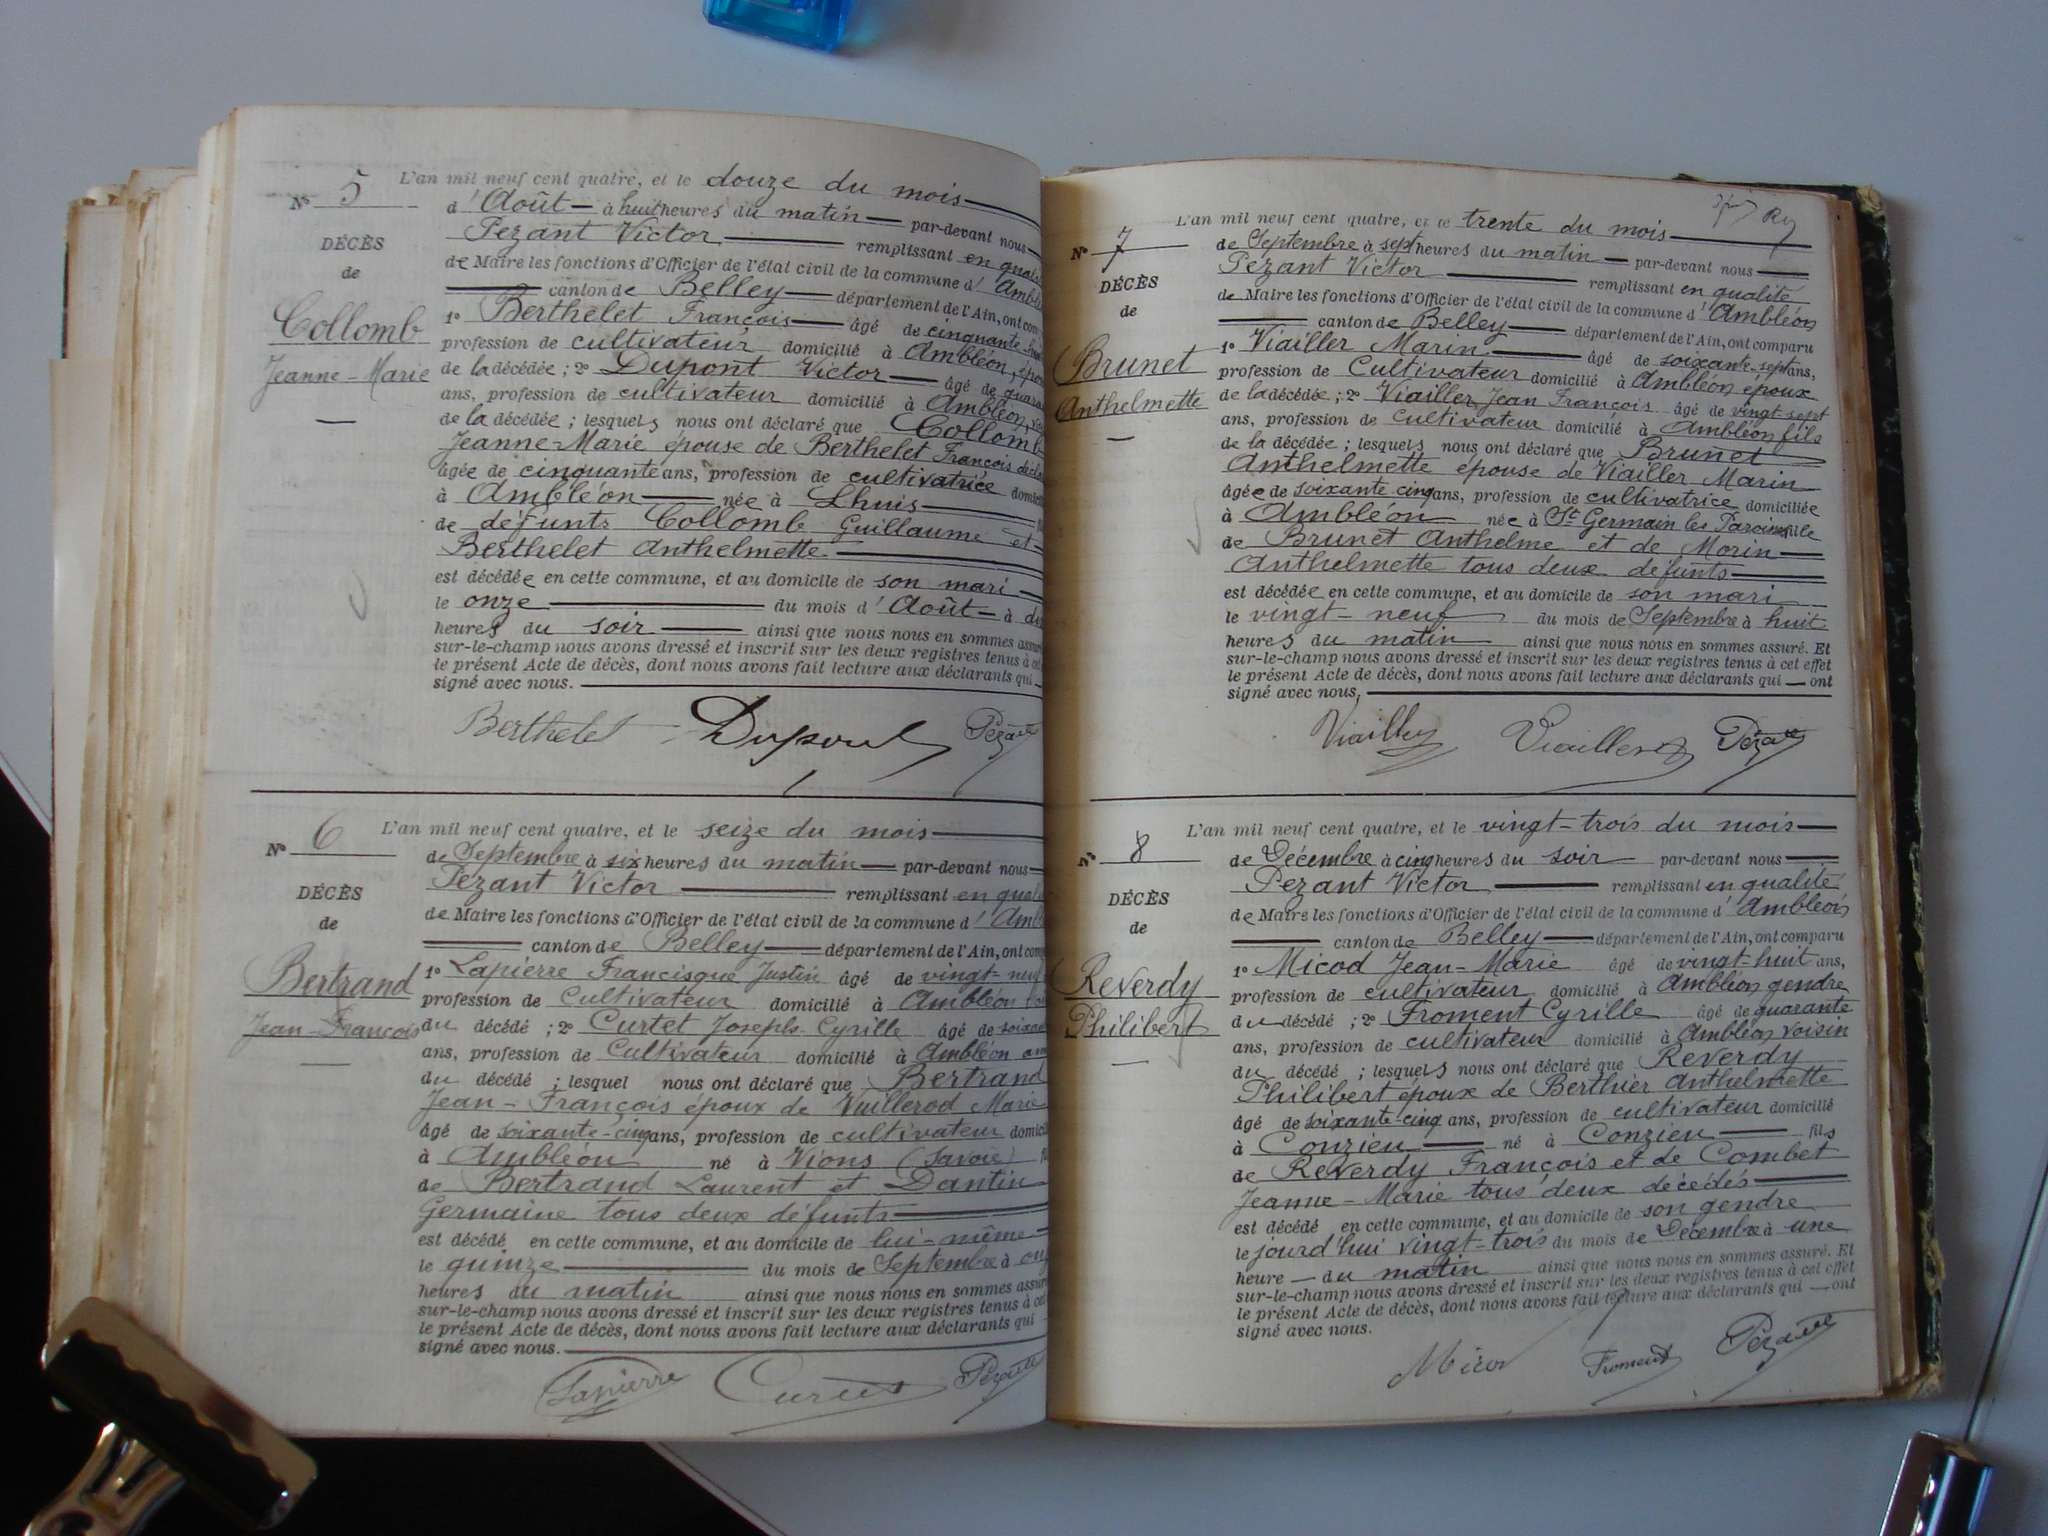 L'an mil neuf cent quatre, et le douze du mois
N° 5
d'Août à huit heures du matin par-devant nous
Pezant Victor remplissant en
DÉCÈS
de
de Maire les fonctions d'Officier de l'état civil de la commune d'
canton de Belley département de l'Ain, ont
Collomb
Jeanne-Marie
1° Berthelet François âgé de cinquante
profession de cultivateur domicilié à Ambléon,
de la décédée ; 2° Dupont Victor âgé de
ans, profession de cultivateur domicilié à Ambléon,
de la décédée ; lesquels nous ont déclaré que Collomb
Jeanne-Marie épouse de Berthelet François
âgée de cinquante ans, profession de cultivatrice
à Ambléon née à Lhuis
de défunts Collomb Guillaume et
Berthelet Anthelmette
est décédée en cette commune, et au domicile de son mari
le onze du mois d'Août à
heures du soir ainsi que nous nous en sommes
sur-le-champ nous avons dressé et inscrit sur les deux registres tenus à
le présent Acte de décès, dont nous avons fait lecture aux déclarants qui
signé avec nous.
Berthelet Dupont Pézant
L'an mil neuf cent quatre, et le seize du mois
N° 6
de Septembre à six heures du matin par-devant nous
Pezant Victor remplissant en
DÉCÈS
de
de Maire les fonctions d'Officier de l'état civil de la commune d'
canton de Belley département de l'Ain, ont
Bertrand
Jean-François
1° Lapierre Francisque Justin âgé de vingt-neuf
profession de Cultivateur domicilié à Ambléon
du décédé ; 2° Curtet Joseph Cyrille âgé de
ans, profession de Cultivateur domicilié à Ambléon
du décédé ; lesquel nous ont déclaré que Bertrand
Jean-François époux de Vuillerod Marie
âgé de soixante-cinq ans, profession de cultivateur
à Ambléon né à Vions (Savoie)
de Bertrand Laurent et Dantin
Germaine tous deux défunts
est décédé en cette commune, et au domicile de lui-même
le quinze du mois de Septembre à
heures du matin ainsi que nous nous en sommes
sur-le-champ nous avons dressé et inscrit sur les deux registres tenus à
le présent Acte de décès, dont nous avons fait lecture aux déclarants qui
signé avec nous.
Lapierre Curtet Pézant
L'an mil neuf cent quatre, et le trente du mois
N° 7
de Septembre à sept heures du matin par-devant nous
Pézant Victor remplissant en qualité
DÉCÈS
de
de Maire les fonctions d'Officier de l'état civil de la commune d'Ambléon
canton de Belley département de l'Ain, ont comparu
Brunet
Anthelmette
1° Viailler Marin âgé de soixante-sept ans,
profession de Cultivateur domicilié à Ambléon époux
de la décédée ; 2° Viailler Jean François âgé de vingt-sept
ans, profession de cultivateur domicilié à Ambléon fils
de la décédée ; lesquels nous ont déclaré que Brunet
Anthelmette épouse de Viailler Marin
âgée de soixante cinq ans, profession de cultivatrice domiciliée
à Ambléon née à St Germain les Paroisses fille
de Brunet Anthelme et de Morin
Anthelmette tous deux défunts
est décédée en cette commune, et au domicile de son mari
le vingt-neuf du mois de Septembre à huit
heures du matin ainsi que nous nous en sommes assuré. Et
sur-le-champ nous avons dressé et inscrit sur les deux registres tenus à cet effet
le présent Acte de décès, dont nous avons fait lecture aux déclarants qui ont
signé avec nous,
Viailler Pézant
L'an mil neuf cent quatre, et le vingt-trois du mois
N° 8
de Décembre à cinq heures du soir par-devant nous
Pezant Victor remplissant en qualité
DÉCÈS
de
de Maire les fonctions d'Officier de l'état civil de la commune d'Ambléon
canton de Belley département de l'Ain, ont comparu
Reverdy
Philibert
1° Micod Jean-Marie âgé de vingt-huit ans,
profession de cultivateur domicilié à Ambléon gendre
du décédé ; 2° Froment Cyrille âgé de quarante
ans, profession de cultivateur domicilié à Ambléon voisin
du décédé ; lesquels nous ont déclaré que Reverdy
Philibert époux de Berthier Anthelmette
âgé de soixante-cinq ans, profession de cultivateur domicilié
à Conzieu né à Conzieu fils
de Reverdy François et de Combet
Jeanne-Marie tous deux décédés
est décédé en cette commune, et au domicile de son gendre
le jourd'hui vingt-trois du mois de Décembre à une
heure du matin ainsi que nous nous en sommes assuré. Et
sur-le-champ nous avons dressé et inscrit sur les deux registres tenus à cet effet
le présent Acte de décès, dont nous avons fait lecture aux déclarants qui ont
signé avec nous.
Micod Froment Pézant